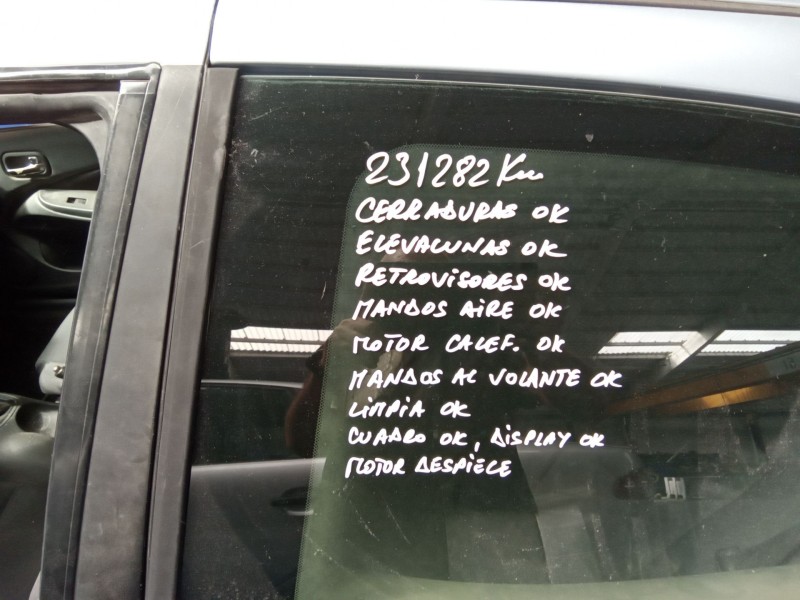 231282 Km
CERRADURAS OK
ELEVALUNAS OK
RETROVISORES OK
MANDOS AIRE OK
MOTOR CALEF. OK
MANDOS AL VOLANTE OK
LIMPIA OK
CUADRO OK, DISPLAY OK
MOTOR DESPIECE